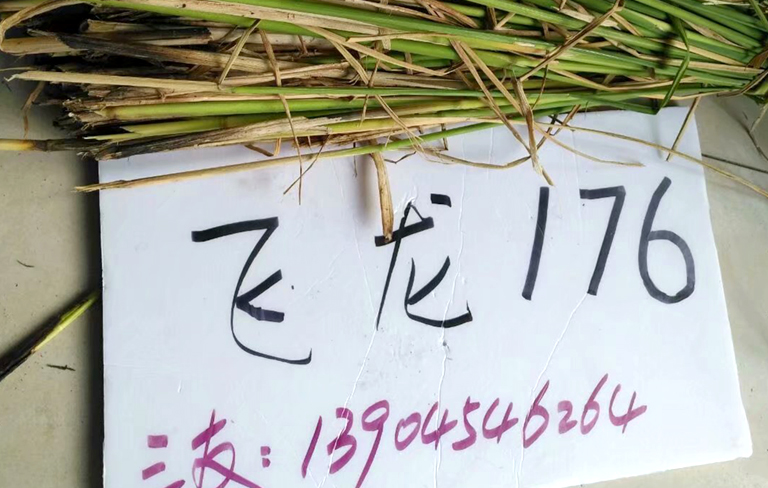 飞龙176
三友:13904546264